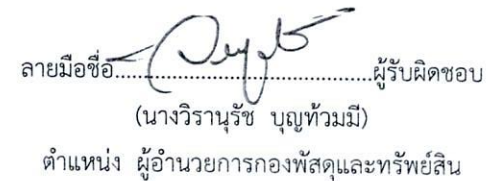 ลายมือชื่อ..............................................ผู้รับผิดชอบ
(นางวิรานุรัช บุญท้วมมี)
ตำแหน่ง ผู้อำนวยการกองพัสดุและทรัพย์สิน